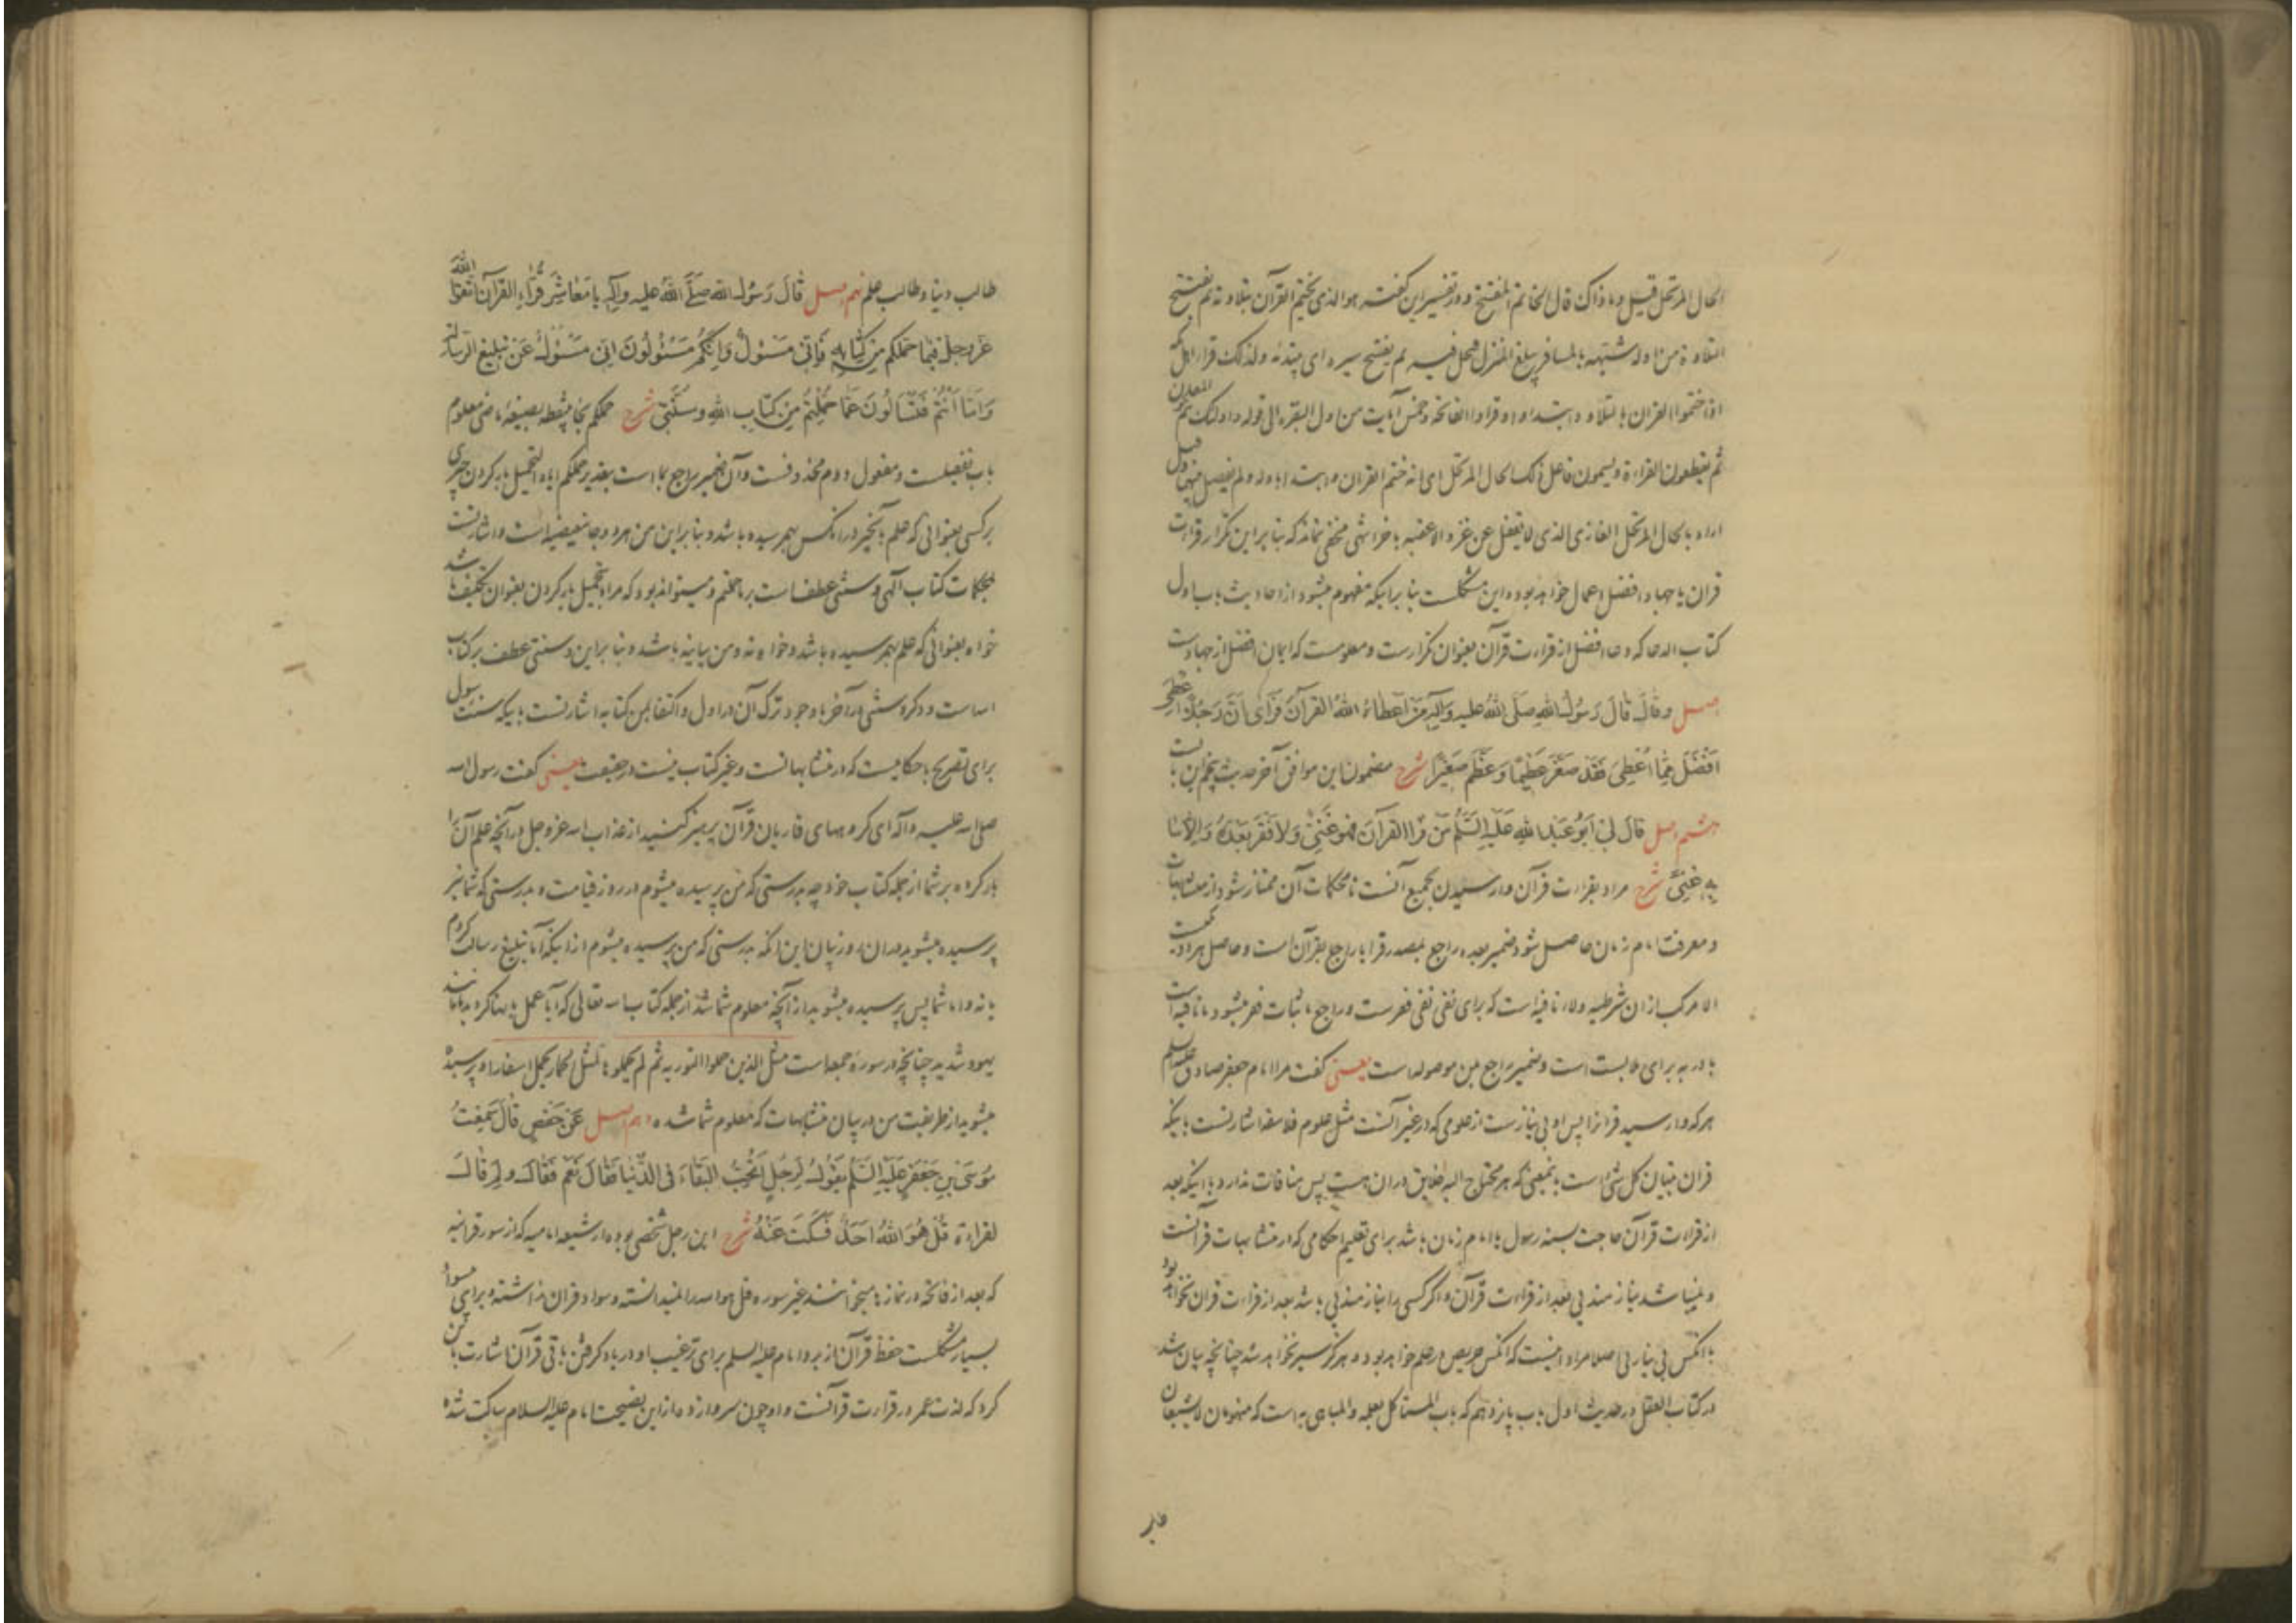 الحال المرتحل قیل و ما ذاک قال الخاتم المفتتح و در تفسیر این کفته هو الذی یختم القرآن بتلاوته ثم یفتتح
التلاوة من اوله شبّهه بالمسافر یبلغ المنزل فیحل فیه ثم یفتتح سیره ای یبتدئه و لذلک قراء اهل مکه
اذا ختموا القران بالتلاوه ابتداوا و قراوا الفاتحة و خمس آیات من اول البقره الی قوله و اولئک هم المفلحون
ثم یقطعون القراءة و یسمون فاعل ذلک الحال المرتحل ای انه ختم القران و ابتدا باوله و لم یفصل بینهما و قیل
اراد بالحال المرتحل الغازی الذی لا یقفل عن غزو الا عقبه بآخر انتهی مخفی نماند که بنا براین تکرار قراءت
قران یا جهاد افضل اعمال خواهد بود و این مشکلست بنا برانیکه مفهوم میشود از احادیث باب اول
کتاب الدعا که دعا افضل از قراءت قرآن بعنوان تکرارست و معلومست که ایمان افضل از جهادست
اصل و قال قال رسول الله صلی الله علیه و آله من اعطاه الله القرآن فرأی ان رجلا اعطی
افضل مما اعطی فقد صغر عظیما و عظم صغیرا شرح مضمون این موافق آخر حدیث پنجم این بابست
هشتم اصل قال لی ابو عبد الله علیه السلم من قرا القرآن فهو غنی و لا فقر بعده و الا ما
به غنی شرح مراد بقراءت قرآن وارسیدن بجمیع آنست تا محکمات آن ممتاز شود از متشابهات
و معرفت امام زمان حاصل شود ضمیر بعده راجع بمصدر قرا یا راجع بقرآن است و حاصل هر دو یکیست
الا مرکب از ان شرطیه و لاء نافیه است که برای نفی نفی فقرست و راجع باثبات فقر میشود ما نافیه است
با در به برای ملابست است و ضمیر راجع بمن موصوله است یعنی کفت مرا امام جعفر صادق علیه السلم
هر که وارسید قرانرا پس او بی نیازست از علومی که در غیر آنست مثل علوم فلاسفه اشارتست باینکه
قران تبیان کل شئ است بمعنی که هر محتاج الیه خلایق دران هست پس منافات ندارد با اینکه بعد
از قراءت قرآن حاجت بسنه رسول یا امام زمان باشد برای تعلیم احکامی که در متشابهات قرآنست
و نمیباشد نیازمندیی بعد از قراءت قرآن و اکر کسی را نیازمندیی باشد بعد از قراءت قران نخواهد بود
با انکس بی نیازیی اصلا مراد اینست که انکس حریص در علم خواهد بود و هرکز سیر نخواهد شد چنانچه بیان شد
در کتاب العقل در حدیث اول باب پانزدهم که باب المستاکل بعلمه و المباهی به است که منهومان لا یشبعان
طالب دنیا و طالب علم نهم اصل قال رسول الله صلی الله علیه و آله یا معاشر قراء القرآن اتقوا الله
عز و جل فیما حملکم من کتابه فانی مسؤل و انکم مسئولون انی مسؤل عن تبلیغ الرسالة
و اما انتم فتسالون عما حملتم من کتاب الله و سنتی شرح حملکم بحاء بینقطه بصیغه ماضی معلوم
باب تفعیلست و مفعول دوم محذوفست و آن ضمیر راجع بما است بتقدیر حملکم ایاه التحمیل بار کردن چیزی
بر کسی بعنوانی که علم بآنچیز در انکس بهم رسیده باشد و بنا براین من هر دو جا تبعیضیه است و اشارتست
بمحکمات کتاب الهی و سنتی عطفست بر ما حملتم و میتواند بود که مراد بتحمیل بار کردن بعنوان تکلیف باشد
خواه بعنوانی که علم بهم رسیده باشد و خواه نه و من بیانیه باشد و بنا براین و سنتی عطف بر کتاب
الله است و ذکر و سنتی در آخر با وجود ترک آن در اول و اکتفا بمن کتابه اشارتست باینکه سنت رسول
برای تصریح باحکامیست که در متشابهاتست و غیر کتاب نیست در حقیقت یعنی کفت رسول الله
صلی الله علیه و آله ای کروههای قاریان قرآن پرهیز کنید از عذاب الله عز و جل در آنچه علم آن را
بار کرده بر شما از جمله کتاب خود چه بدرستی که من پرسیده میشوم در روز قیامت و بدرستی که شما نیز
پرسیده میشوید دران روز بیان این انکه بدرستی که من پرسیده میشوم از اینکه آیا تبلیغ رسالت کردم
یا نه و اما شما پس پرسیده میشوید از آنچه معلوم شما شد از جمله کتاب الله تعالی که آیا عمل بانها کردید یا مانند
یهود شدید چنانچه در سوره جمعه است مثل الذین حملوا التوریه ثم لم یحملوها کمثل الحمار یحمل اسفارا و پرسیده
میشوید از طریقت من در بیان متشابهات که معلوم شما شده دهم اصل عن حفص قال سمعت
موسی بن جعفر علیه السلم یقول لرجل اتحب البقاء فی الدنیا فقال نعم فقال و لم قال
لقراءة قل هو الله احد فسکت عنه شرح این رجل شخصی بوده از شیعه امامیه که از سور قرانیه
که بعد از فاتحه در نماز میخوانند غیر سوره قل هو الله را نمیدانسته و سواد قران نداشته و برای
بسیار مشکلست حفظ قرآن از بر و امام علیه السلم برای ترغیب او در یاد کرفتن باقی قرآن اشارت باین
کرد که لذت عمر در قراءت قرآنست و او چون سر وازد ازین نصیحت امام علیه السلام ساکت شده